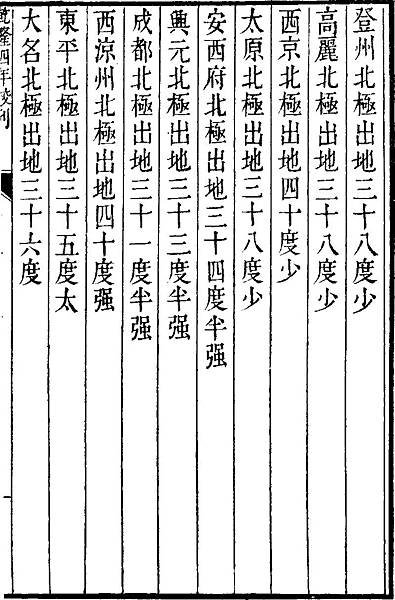 登州北極出地三十八度少
高麗北極出地三十八度少
西京北極出地四十度少
太原北極出地三十八度少
安西府北極出地三十四度半强
興元北極出地三十三度半强
成都北極出地三十一度半强
西涼州北極出地四十度强
東平北極出地三十五度太
大名北極出地三十六度
乾隆四年校刊